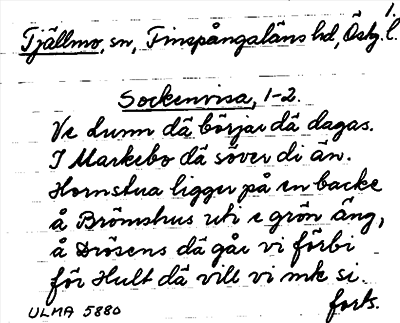 1.
Tjällmo, sn, Finspångaläns hd, Östg. l.
Sockenvisa, 1-2.
Ve Lunn dä börjar dä dagas.
I Markebo dä söver di än.
Hornstua ligger på en backe
å Brömshus uti e grön äng,
å Drösens dä går vi förbi
för Hult dä vill vi mk si.
forts.
ULMA 5880